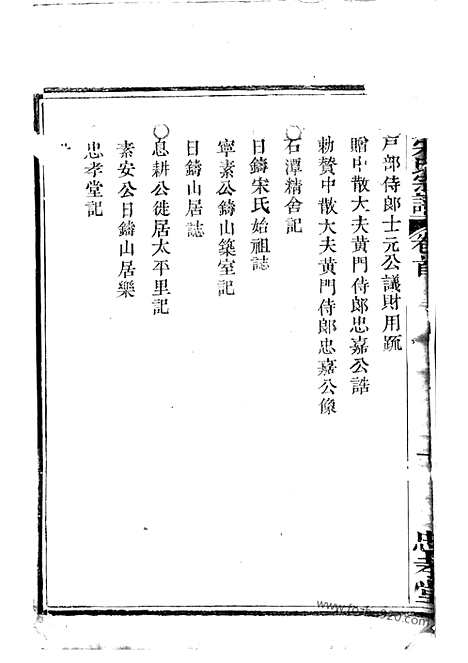 戸部侍郎士元公議財用䟽
贈中散大夫黄門侍郎忠嘉公誥
勅贊中散大夫黄門侍郎忠嘉公像
石潭精舍記
日鑄宋氏始祖誌
寧素公鑄山築室記
日鑄山居誌
息耕公徙居太平里記
素安公日鑄山居樂
忠孝堂記
卷首
忠孝堂